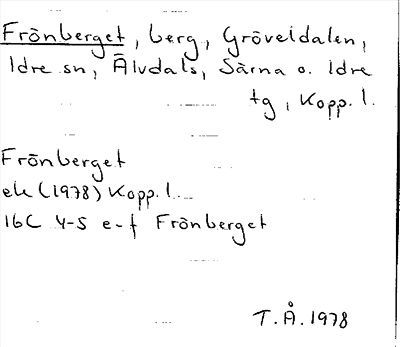 Frönberget, berg, Gröveldalen,
Idre sn, Älvdals, Särna o. Idre
tg, Kopp. l.
Frönberget
ek (1978) Kopp. l.
16C 4-5 e-f Frönberget
T.Å. 1978